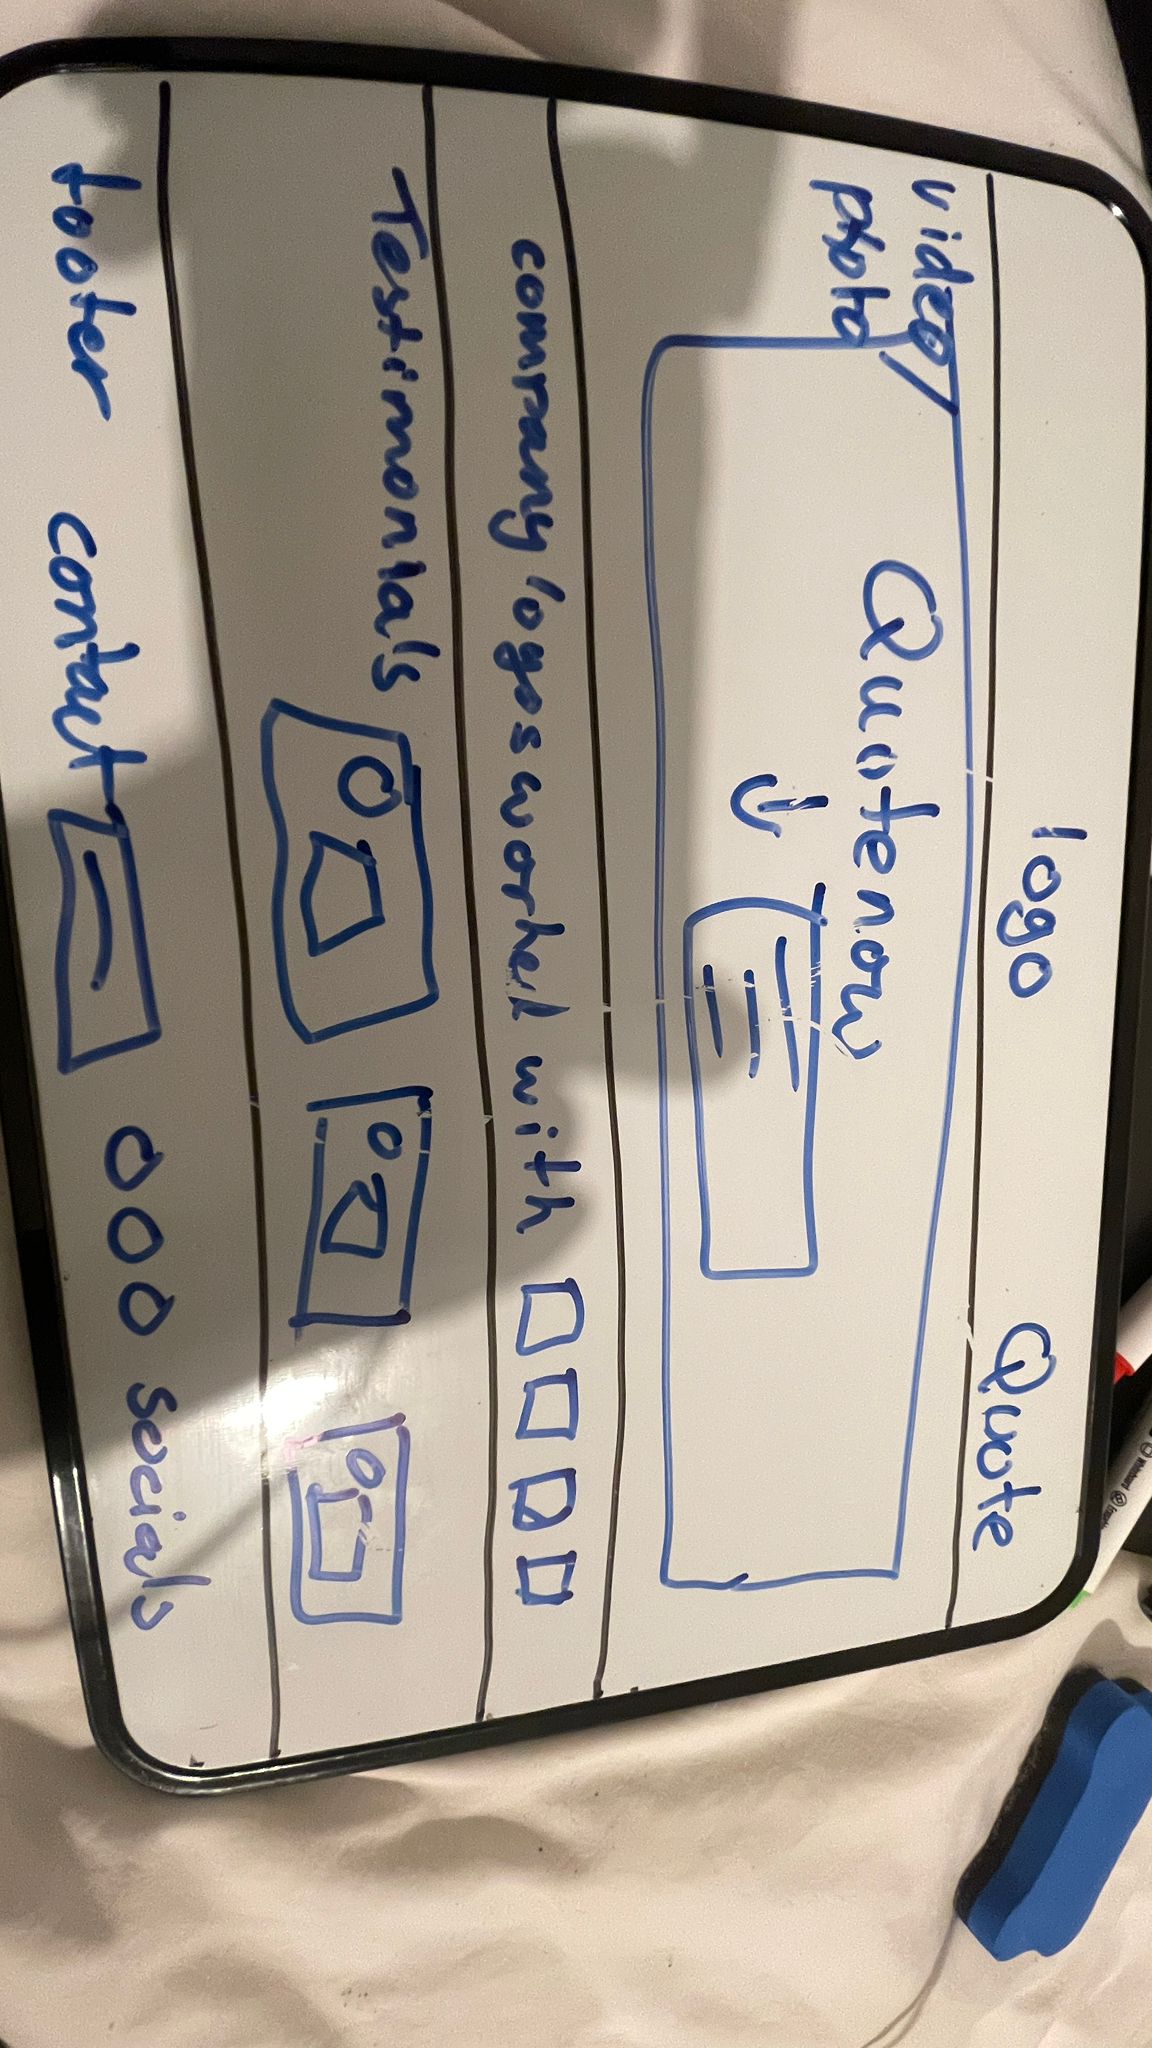 logo
Quote
video/
photo
Quote now
company logos worked with
Testimonials
footer
contact
socials